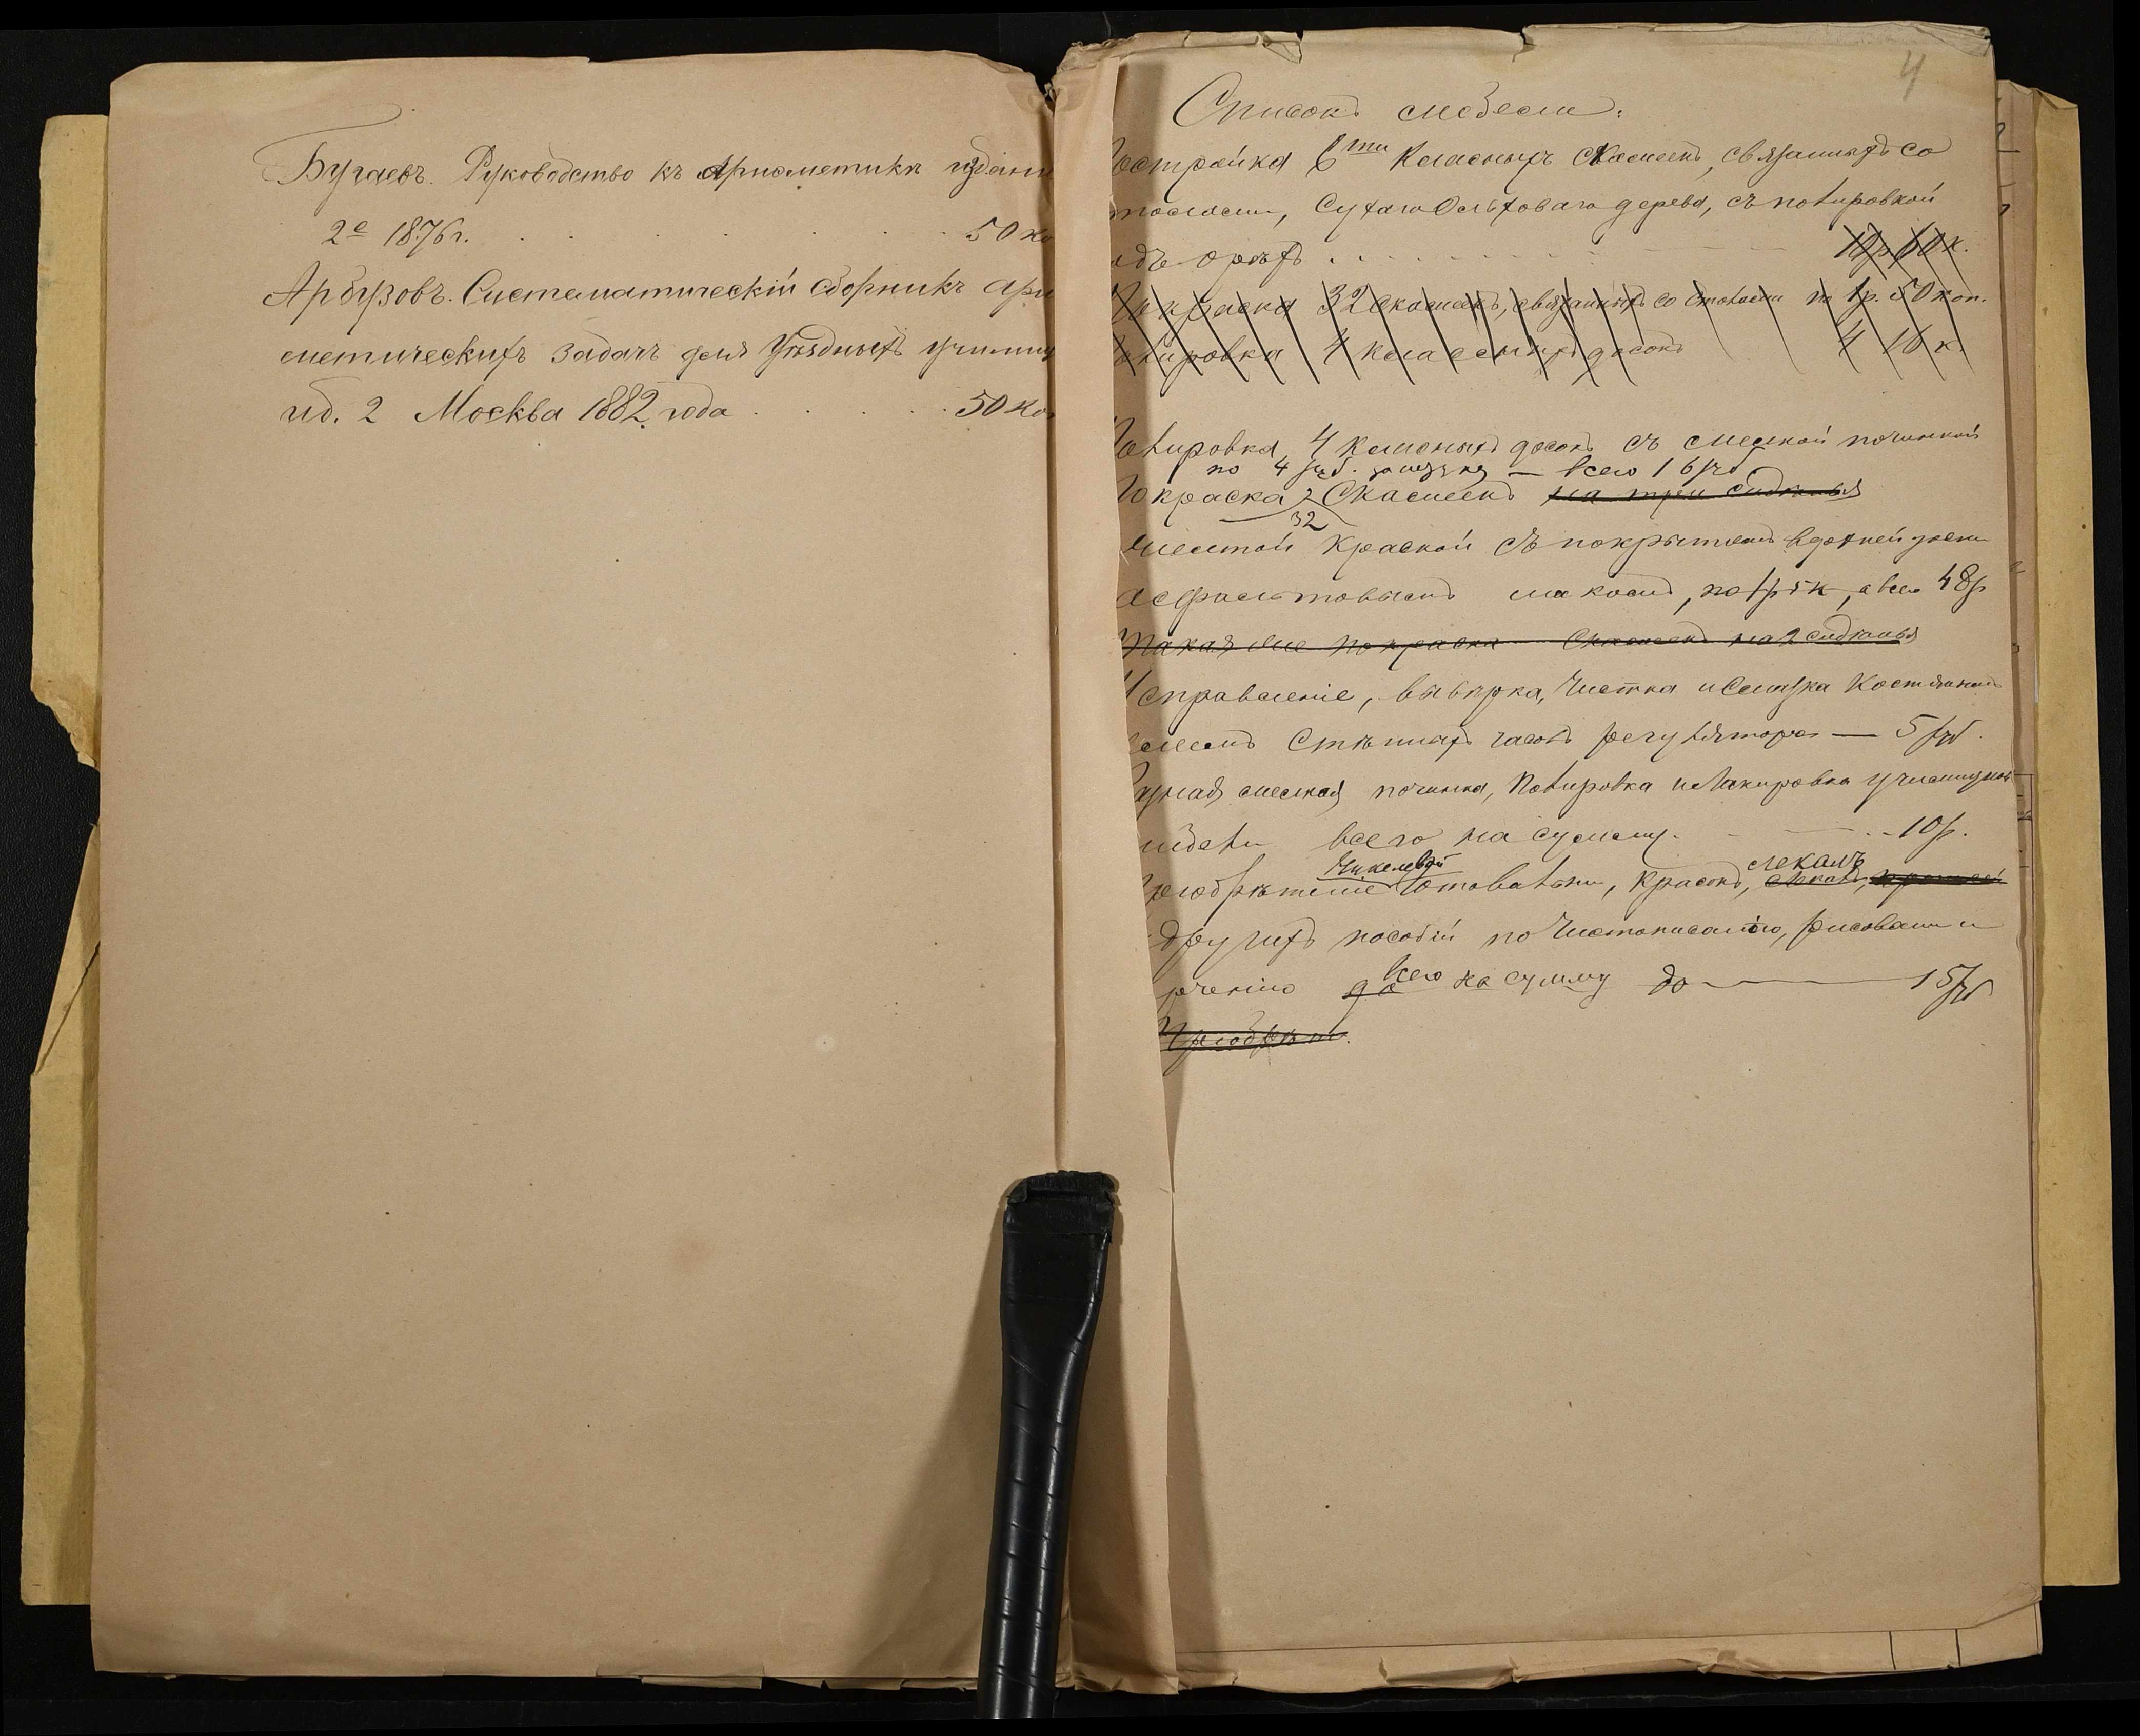 Бугаевъ. Руководство къ Ариѳметикѣ издані
2е 1876 г. . . . . . . . 50 ко
Арбузовъ. Систематическій сборникъ ари
метическихъ задачъ для Уѣздныхъ училищ
изд. 2 Москва 1882 года . . . . . 50 ко
4
Списокъ мебели:
Постройка 6ти класныхъ скамеекъ, связанныхъ со
столами, сухаго Ольховаго дерева, съ полировкой
одъ орѣхъ . . . . . . . 10 р. 60 к.
Покраска 32 скамеекъ, связанныхъ со столами по 1 р. 50 коп.
Полировка 4 классныхъ досокъ 4 10 к.
Полировка 4 класныхъ досокъ съ мелкой починкой
по 4 руб. за штуку — всего 16 руб
Покраска 32 Скамеекъ на три сидѣнья
желтой краской съ покрытіемъ верхней доски
асфальтовымъ лакомъ, по 1 р 5 к, а всего 48 р
Такая же покраска Скамеекъ на 2 сидѣнья
Исправленіе, вывѣрка, чистка и смазка Костянымъ
Стѣнныхъ часовъ регулятора — 5 руб.
Разная мелкая починка, полировка и лакировка училищной
мебели всего на сумму. — 10 р.
Никелевой лекалъ
Пріобрѣтеніе Готовальни, красокъ,
другихъ пособій по Чистописанію, рисованію и
рченію всего на сумму до — 15 руб
Пріобрѣтен.